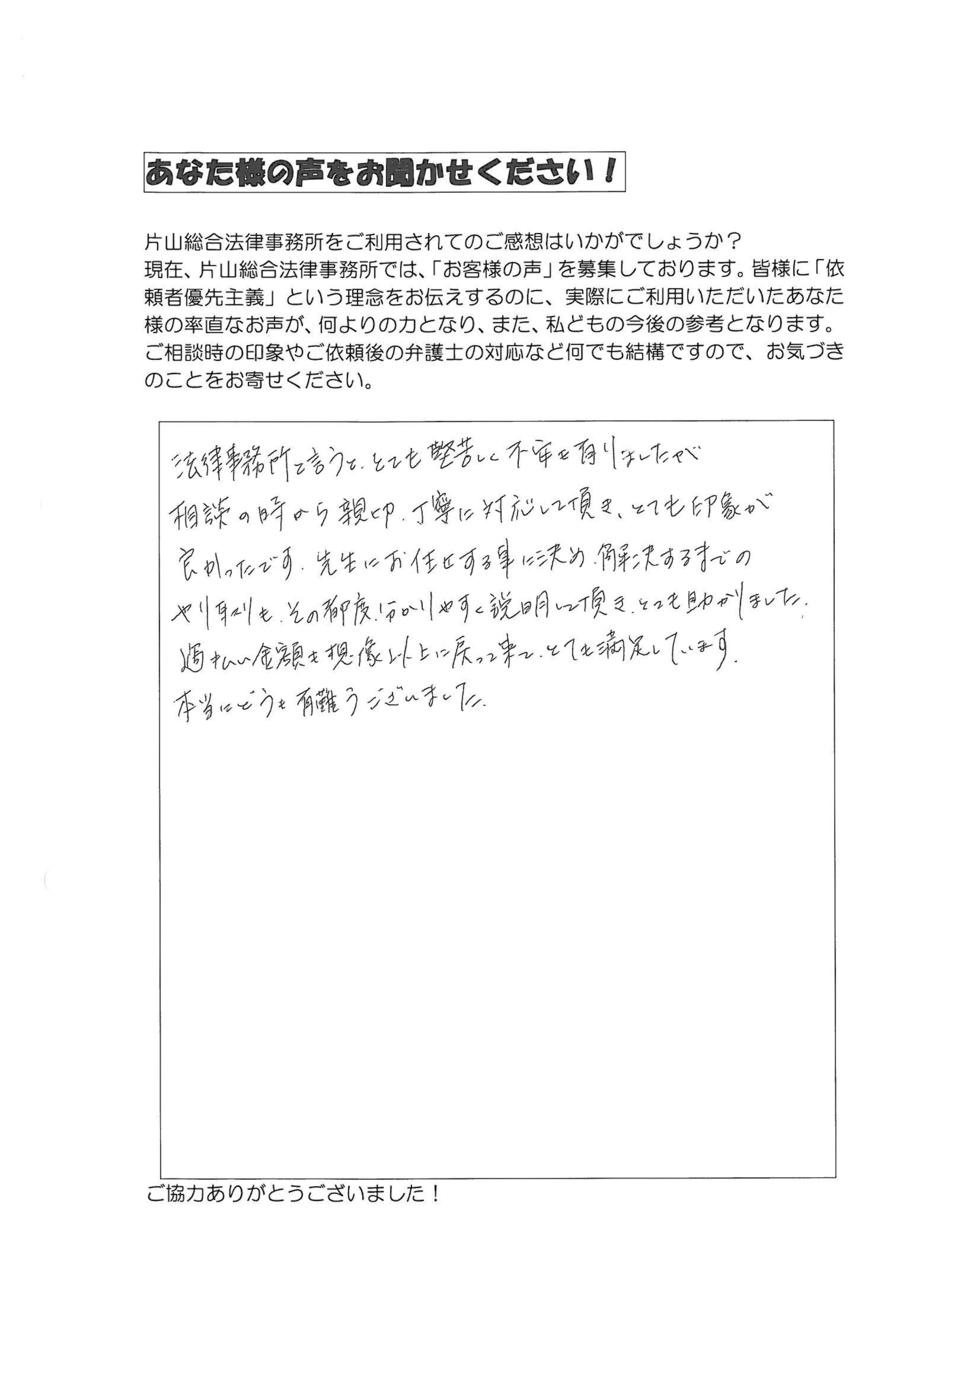 あなた様の声をお聞かせください！
片山総合法律事務所をご利用されてのご感想はいかがでしょうか？
現在、片山総合法律事務所では、「お客様の声」を募集しております。皆様に「依
頼者優先主義」という理念をお伝えするのに、実際にご利用いただいたあなた
様の率直なお声が、何よりの力となり、また、私どもの今後の参考となります。
ご相談時の印象やご依頼後の弁護士の対応など何でも結構ですので、お気づき
のことをお寄せください。
法律事務所と言うと、とても堅苦しく不安も有りましたが
相談の時から親切、丁寧に対応して頂き、とても印象が
良かったです。先生にお任せする事に決め、解決するまでの
やり取りも、その都度、分かりやすく説明して頂き、とても助かりました。
過払い金額も想像以上に戻って来て、とても満足しています。
本当にどうも有難うございました。
ご協力ありがとうございました！